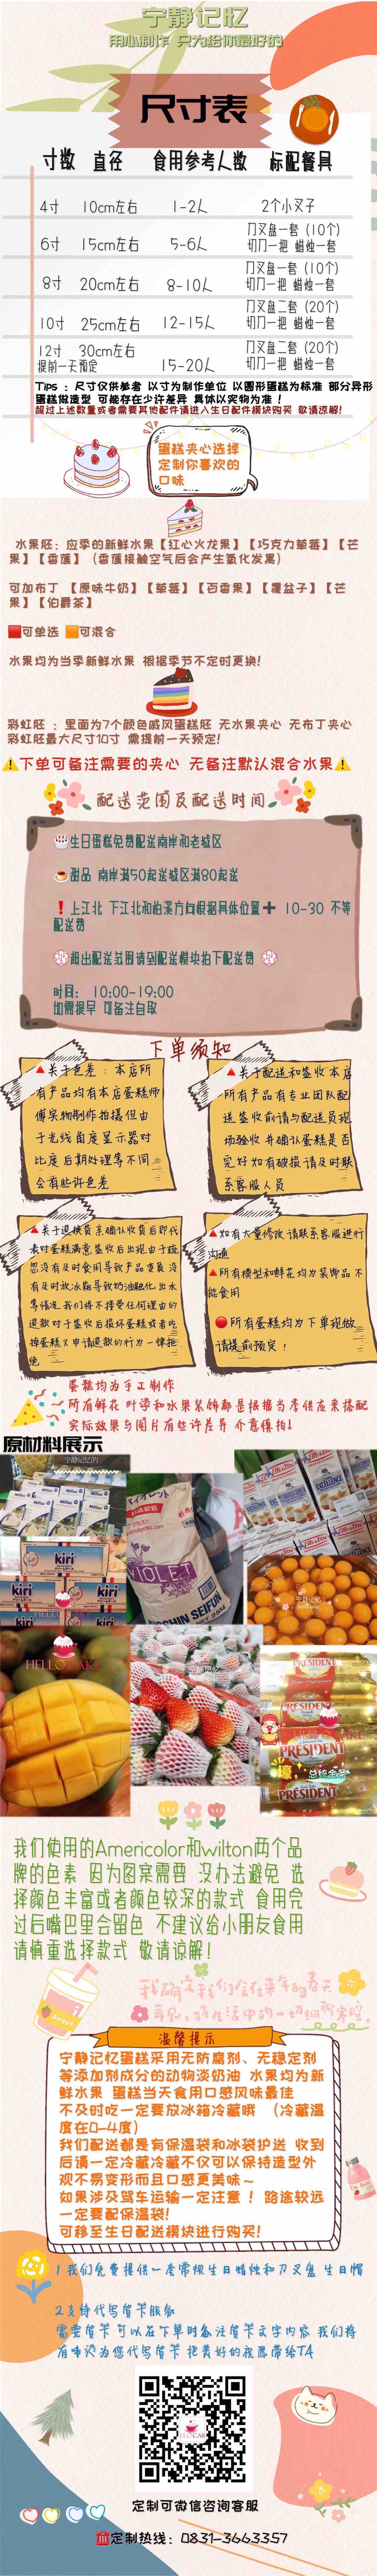 宁静记忆
用心制作 只为给你最好的
尺寸表
寸数 直径 食用参考人数 标配餐具
4寸 10cm左右 1-2人 2个小叉子
6寸 15cm左右 5-6人 刀叉盘一套（10个）
切刀一把 蜡烛一套
8寸 20cm左右 8-10人 刀叉盘一套（10个）
切刀一把 蜡烛一套
10寸 25cm左右 12-15人 刀叉盘二套（20个）
切刀一把 蜡烛一套
12寸 30cm左右
提前一天预定 15-20人 刀叉盘二套（20个）
切刀一把 蜡烛一套
Tips ：尺寸仅供参考 以寸为制作单位 以圆形蛋糕为标准 部分异形
蛋糕做造型 可能存在少许差异 具体以实物为准！
超过上述数量或者需要其他配件请进入生日配件模块购买 敬请谅解！
蛋糕夹心选择
定制你喜欢的
口味
水果胚：应季的新鲜水果【红心火龙果】【巧克力草莓】【芒
果】【香蕉】（香蕉接触空气后会产生氧化发黑）
可加布丁 【原味牛奶】【草莓】【百香果】【覆盆子】【芒
果】【伯爵茶】
🟥可单选 🟧可混合
水果均为当季新鲜水果 根据季节不定时更换！
彩虹胚 ：里面为7个颜色戚风蛋糕胚 无水果夹心 无布丁夹心
彩虹胚最大尺寸10寸 需提前一天预定！
⚠️下单可备注需要的夹心 无备注默认混合水果⚠️
配送范围及配送时间
生日蛋糕免费配送南岸和老城区
甜品 南岸满50起送城区满80起送
❗上江北 下江北和柏溪方向根据具体位置➕ 10-30 不等
配送费
超出配送范围请到配送模块拍下配送费
时间： 10:00-19:00
如需提早 可备注自取
下单须知
🔺关于色差：本店所
有产品均有本店蛋糕师
傅实物制作拍摄但由
于光线角度显示器对
比度后期处理等不同
会有些许色差
🔺关于配送和签收本店
所有产品有专业团队配
送签收前请与配送员现
场验收并确认蛋糕是否
完好如有破损请及时联
系客服人员
🔺关于退换货亲确认收货后即代
表对蛋糕满意签收后出现由于疏
忽没有及时食用导致产品变质没
有及时放冰箱导致奶油融化出水
等情况我们将不接受任何理由的
退款对于签收后损坏蛋糕或者吃
掉蛋糕又申请退款的行为一律拒
绝
🔺如有大量修改请联系客服进行
沟通
🔺所有模型和鲜花均为装饰品不
能食用
🔴所有蛋糕均为下单现做
请提前预定！
蛋糕均为手工制作
所有鲜花 叶子和水果装饰都是根据当季供应来搭配
实际效果与图片有些许差异 介意慎拍！
原材料展示
宁静记忆的
Millac
kiri
kiri
HELLO CAKE
バイオレット
VIOLET
NISSHIN SEIFUN
Elle & Vire
宁静记忆
HELLO CAKE
PRÉSIDENT
PRÉSIDENT
PRÉSIDENT
壕
总统金条
我们使用的Americolor和wilton两个品
牌的色素 因为图案需要 没办法避免 选
择颜色丰富或者颜色较深的款式 食用完
过后嘴巴里会留色 不建议给小朋友食用
请慎重选择款式 敬请谅解！
Sweet
我确定我们会在来年的春天
再见
温馨提示
宁静记忆蛋糕采用无防腐剂、无稳定剂
等添加剂成分的动物淡奶油 水果均为新
鲜水果 蛋糕当天食用口感风味最佳
不及时吃一定要放冰箱冷藏哦 （冷藏温
度在0-4度）
我们配送都是有保温袋和冰袋护送 收到
后请一定冷藏冷藏不仅可以保持造型外
观不易变形而且口感更美味～
如果涉及驾车运输一定注意！ 路途较远
一定要配保温袋！
可移至生日配送模块进行购买！
1 我们免费提供一套常规生日蜡烛和刀叉盘 生日帽
2支持代写贺卡服务
需要贺卡可以在下单时备注贺卡文字内容 我们将
有专人为您代写贺卡 把美好的祝愿带给TA
定制可微信咨询客服
☎️定制热线：0831-3663357